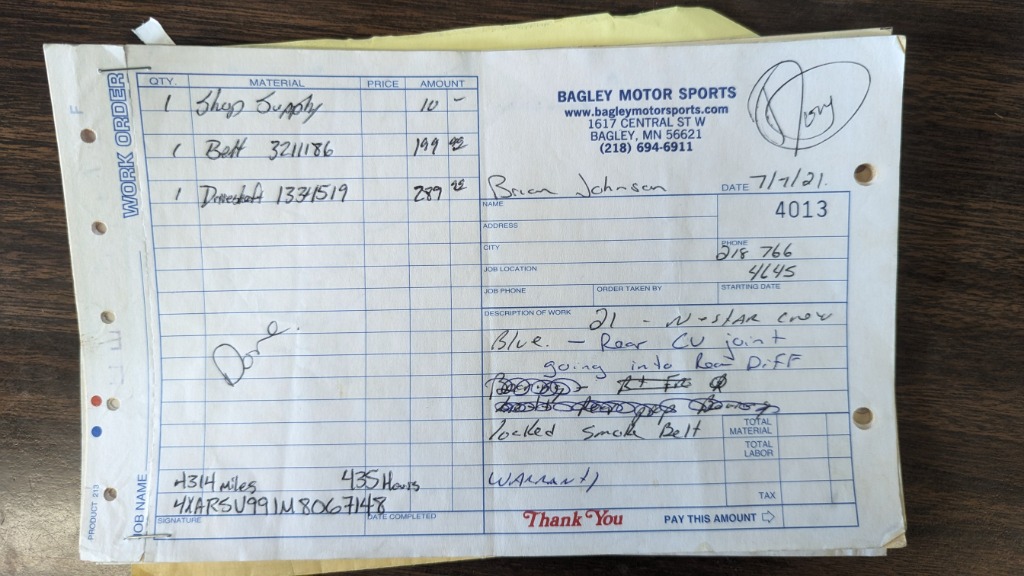 WORK ORDER
QTY. MATERIAL PRICE AMOUNT
1 Shop Supply 10 -
1 Belt 3211186 199 99
1 Driveshaft 1334519 289 99
Done.
4314 miles 435 Hours
4XARSU991M8067148
SIGNATURE DATE COMPLETED
PRODUCT 213
JOB NAME
BAGLEY MOTOR SPORTS
www.bagleymotorsports.com
1617 CENTRAL ST W
BAGLEY, MN 56621
(218) 694-6911
Brian Johnson DATE 7/7/21
NAME
4013
ADDRESS
CITY
PHONE
218 766
4645
JOB LOCATION
JOB PHONE ORDER TAKEN BY STARTING DATE
DESCRIPTION OF WORK
21 - N-STAR Crew
Blue. - Rear CV joint
going into Rear Diff
locked Smoke Belt
WARRANTY
TOTAL MATERIAL
TOTAL LABOR
TAX
Thank You PAY THIS AMOUNT